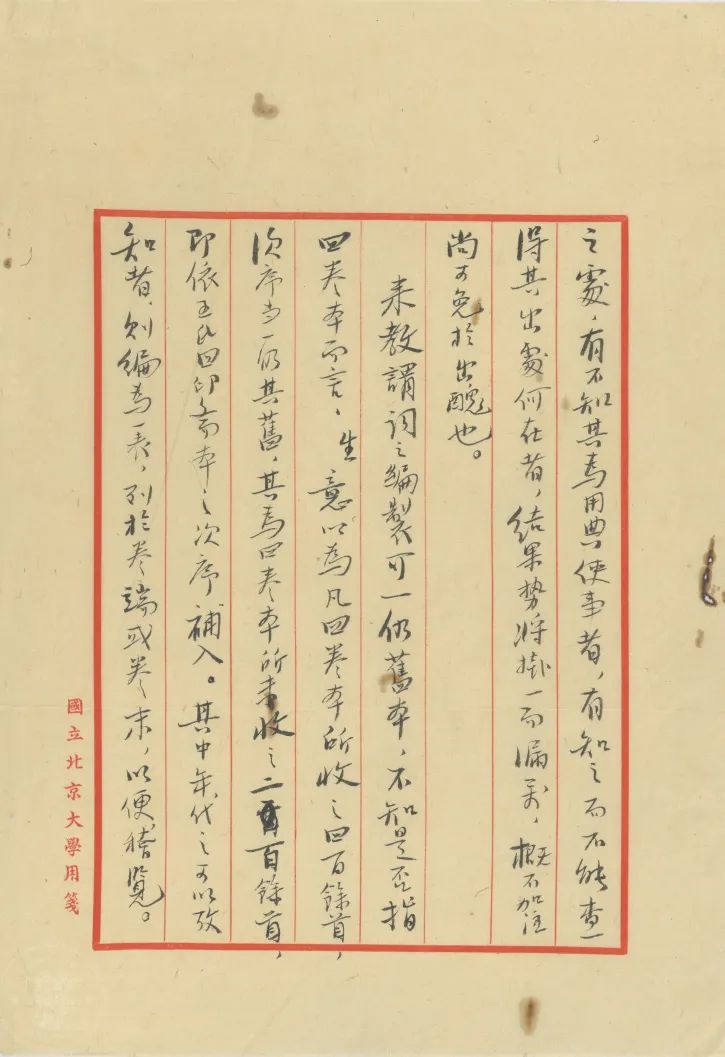 之處，有不知其為用典使事者，有知之而不能查
得其出處何在者，結果勢將掛一而漏萬，概不加注
尚可免於出醜也。
来教謂詞之編製可一仍舊本，不知是否指
四卷本而言，生意以為凡四卷本所收之四百餘首，
次序当一仍其舊，其為四卷本所未收之二百餘首，
即依王氏四印齋本之次序補入。其中年代之可以攷
知者，則編為一表，列於卷端或卷末，以便稽覽。
國立北京大學用箋